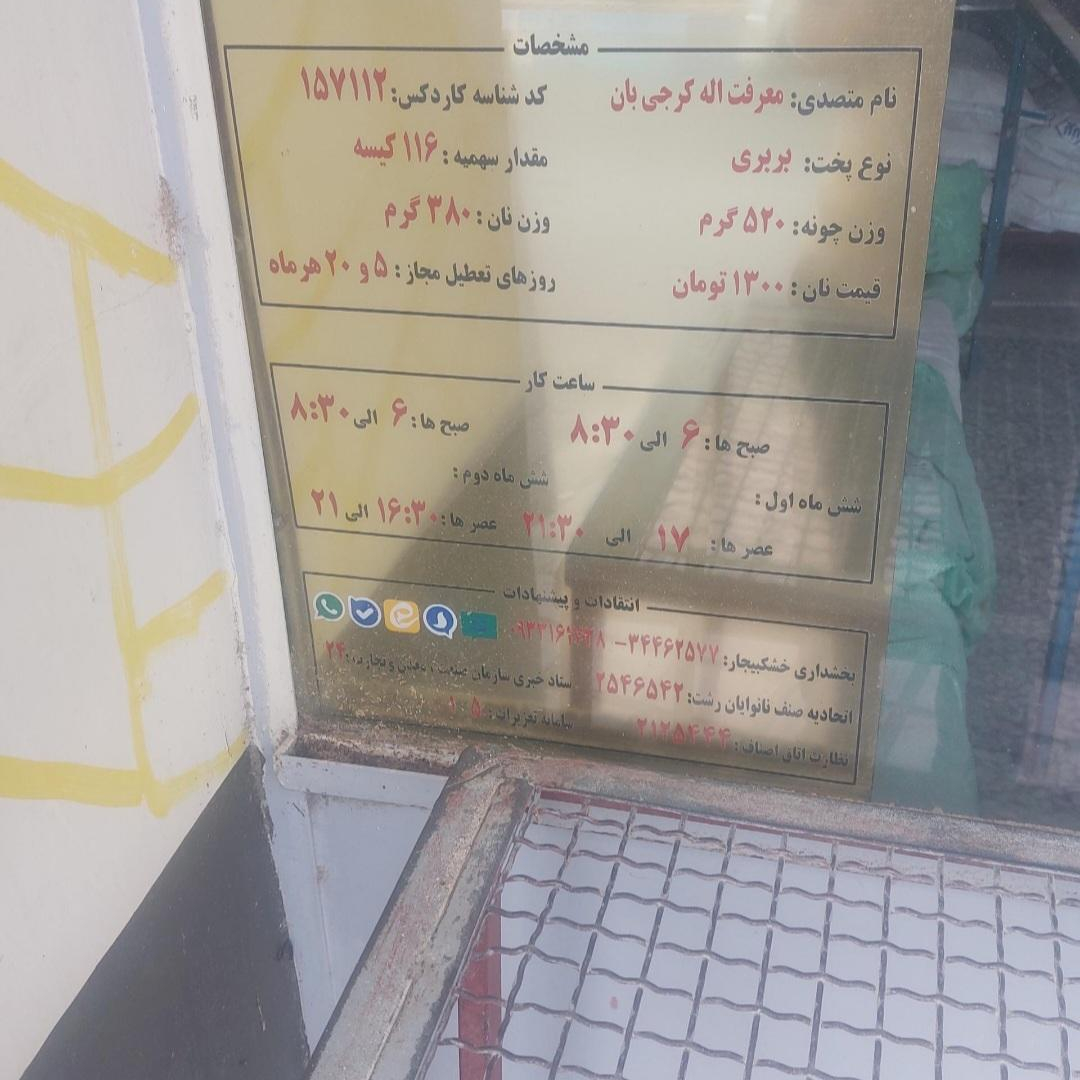 مشخصات
نام متصدی: معرفت اله کرجی بان
کد شناسه کاردکس: ۱۵۷۱۱۲
نوع پخت: بربری
مقدار سهمیه: ۱۱۶ کیسه
وزن چونه: ۵۲۰ گرم
وزن نان: ۳۸۰ گرم
قیمت نان: ۱۳۰۰ تومان
روزهای تعطیل مجاز: ۵ و ۲۰ هرماه
ساعت کار
شش ماه اول:
صبح ها: ۶ الی ۸:۳۰
عصر ها: ۱۷ الی ۲۱:۳۰
شش ماه دوم:
صبح ها: ۶ الی ۸:۳۰
عصر ها: ۱۶:۳۰ الی ۲۱
انتقادات و پیشنهادات
بخشداری خشکبیجار: ۳۴۴۶۲۵۷۷ -
اتحادیه صنف نانوایان رشت: ۲۵۴۶۵۴۲
ستاد خبری سازمان صنعت، معدن و تجارت: ۱۲۴
نظارت اتاق اصناف: ۲۱۲۵۴۴۴
سامانه تعزیرات: